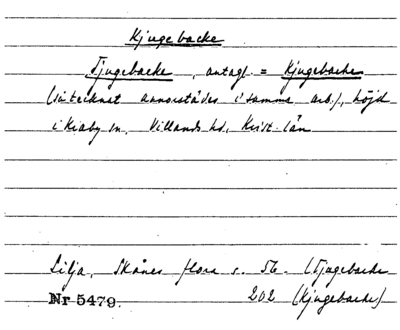 Kjugebacke
Tjugebacke, antagl. = Kjugebacke
(så tecknat annorstädes i samma arb.), höjd
i Kiaby sn, Villands hd, Krist. län
Lilja, Skånes flora s. 56. (Tjugebacke
Nr 5479. 202 (Kjugebacke)